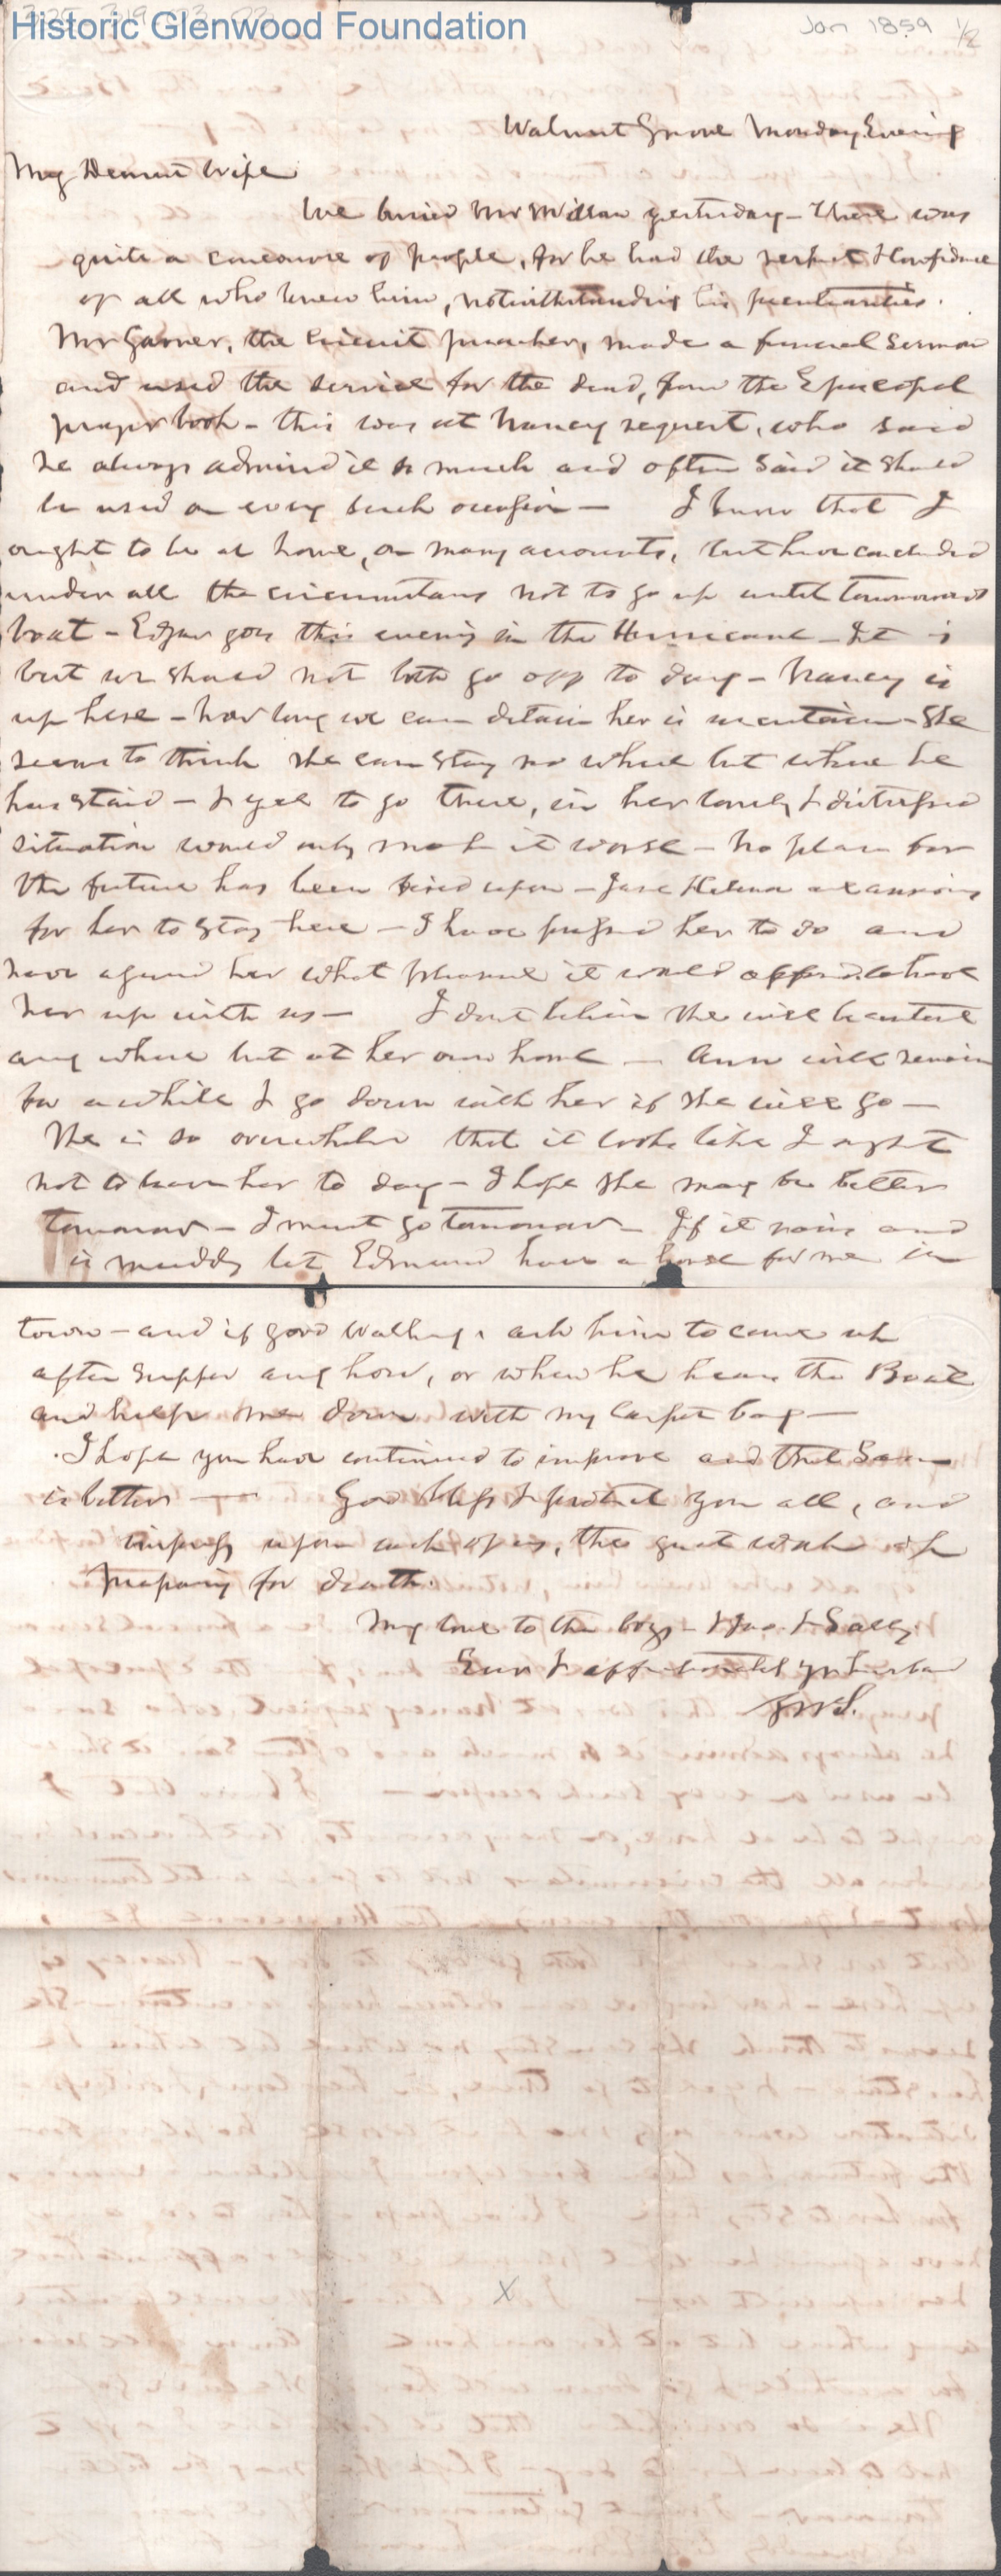 Historic Glenwood Foundation
Jan 1859 1/2
Walnut Grove Monday Evening
My Dearest Wife
We buried Mr McMillan yesterday - There was
quite a concourse of people, for he had the respect & confidence
of all who knew him, notwithstanding his peculiarities.
Mr Garner, the Circuit preacher, made a funeral Sermon
and used the service for the dead, from the Episcopal
prayer book - this was at Nancy request, who said
he always admired it so much and often said it should
be used on every such occasion - I know that I
ought to be at home, on many accounts, but have concluded
under all the circumstances not to go up until tomorrows
boat - Edgar goes this evening in the Hurricane - It is
but we should not both go off to day - Nancy is
up here - how long we can detain her is uncertain - She
seems to think she can stay no where but where he
has staid - & yet to go there, in her lonely & distressed
situation would only make it worse - No plan for
the future has been fixed upon - Jane & Helena are anxious
for her to stay here - I have pressed her to do and
have argued her what pleasure it would afford to have
her up with us - I dont believe she will be content
any where but at her own home - Ann will remain
for awhile & go down with her if she will go -
She is so overwhelmed that it looks like I ought
not to leave her to day - I hope she may be better
tomorrow - I must go tomorrow - If it rains and
is muddy let Edmund have a horse for me in
town - and if good walking, ask him to come up
after supper any how, or when he hears the Boat
and help me down with my Carpet bag -
I hope you have continued to improve and that Sam
is better - God bless & protect you all, and
impress upon each of us, the great work of
preparing for death.
My love to the boys - & Sally
Ever & affectionately yr husband